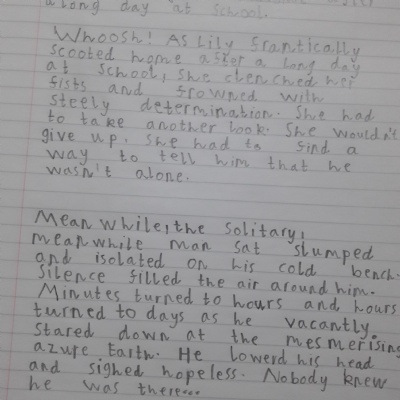 a long day at school.
Whoosh! As Lily frantically
scooted home after a long day
at school, she clenched her
fists and frowned with
steely determination. She had
to take another look. She wouldn't
give up. She had to find a
way to tell him that he
wasn't alone.
Mean while, the solitary,
meanwhile man sat slumped
and isolated on his cold bench.
Silence filled the air around him.
Minutes turned to hours and hours
turned to days as he vacantly
stared down at the mesmerising
azure Earth. He lowerd his head
and sighed hopeless. Nobody knew
he was there...